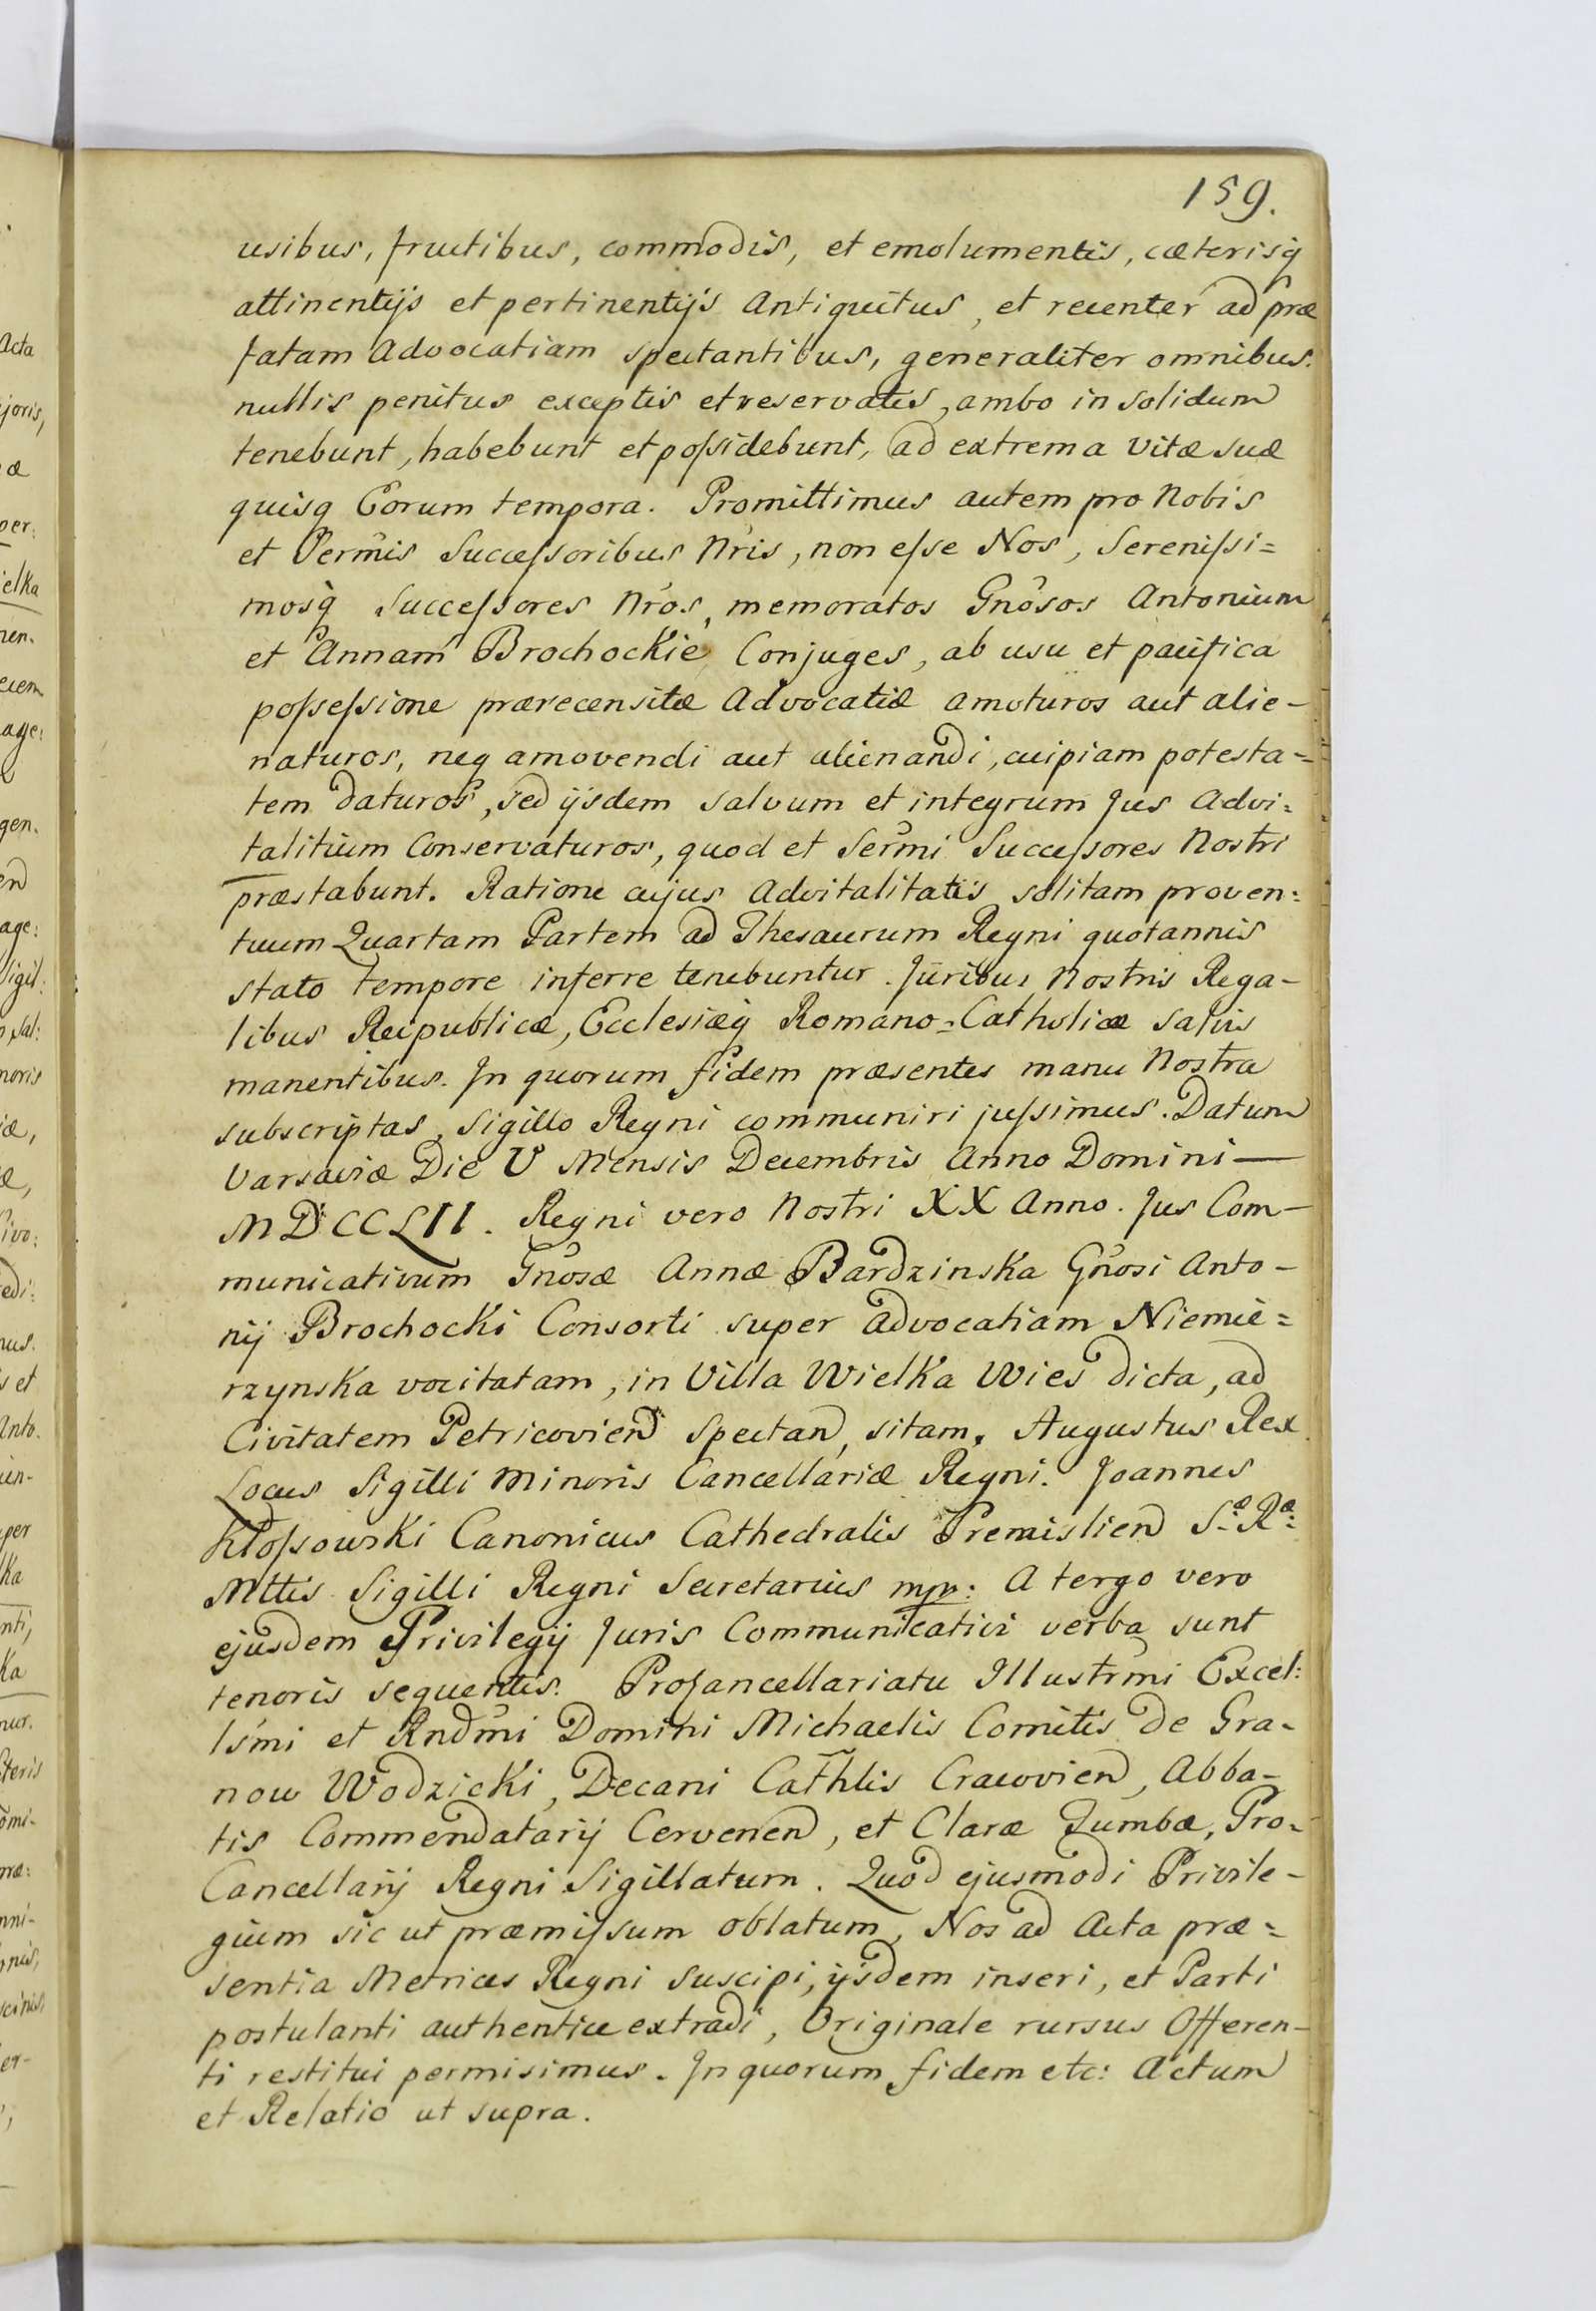 159.
usibus, fructibus, commodis, et emolumentis, cæterisq̃
attinentijs et pertinentijs Antiquitus, et recenter ad præ
fatam Advocatiam spectantibus, generaliter omnibus.
nullis penitus exceptis et reservatis, ambo in solidum
tenebunt, habebunt et possidebunt, ad extrema vitæ suæ
quisq Eorum tempora. Promittimus autem pro Nobis
et Sermis Successoribus Nris, non esse Nos, Serenissi=
mosq̃ Successores Nros, memoratos Gnosos Antonium
et Annam Brochockie Conjuges, ab usu et pacifica
possessione prærecensitæ Advocatiæ amoturos aut alie-
naturos, neq amovendi aut alienandi, cuipiam potesta=
tem daturos, sed ijsdem salvum et integrum Jus Advi=
talitium Conservaturos, quod et Sermi Successores Nostri
præstabunt. Ratione cujus Advitalitatis solitam proven=
tuum Quartam Partem ad Thesaurum Regni quotannis
stato tempore inferre tenebuntur. Juribus Nostris Rega-
libus Reipublicæ, Ecclesiæq̃ Romano=Catholicæ salvis
manentibus. In quorum fidem præsentes manu Nostra
subscriptas, Sigillo Regni communiri jussimus. Datum
Varsaviæ Die V Mensis Decembris Anno Domini—
MDCCLII. Regni vero Nostri XX Anno. Jus Com-
municativum Gnosæ Annæ Bardzinska Gnosi Anto-
nij Brochocki Consorti super Advocatiam Niemie=
rzynska vocitatam, in Villa Wielka Wies dicta, ad
Civitatem Petricovien Spectan, sitam. Augustus Rex
Locus Sigilli Minoris Cancellariæ Regni. Joannes
Kłossowski Canonicus Cathedralis Premislien S.æ R.æ
Mttis Sigilli Regni Secretarius mpp: A tergo vero
ejusdem Privilegij Juris Communicativi verba sunt
tenoris sequentis. Procancellariatu Illustrmi Excel:
lsmi et Rndmi Domini Michaelis Comitis de Gra-
now Wodzicki, Decani Cathlis Cracovien, Abba-
tis Commendatarij Cervenen, et Claræ Tumbæ, Pro-
Cancellarij Regni Sigillatum. Quod ejusmodi Privile-
gium sic ut præmissum oblatum, Nos ad Acta præ=
sentia Metrices Regni suscipi, ijsdem inseri, et Parti
postulanti authentice extradi, Originale rursus Offeren-
ti restitui permisimus. In quorum fidem etc: Actum
et Relatio ut supra.